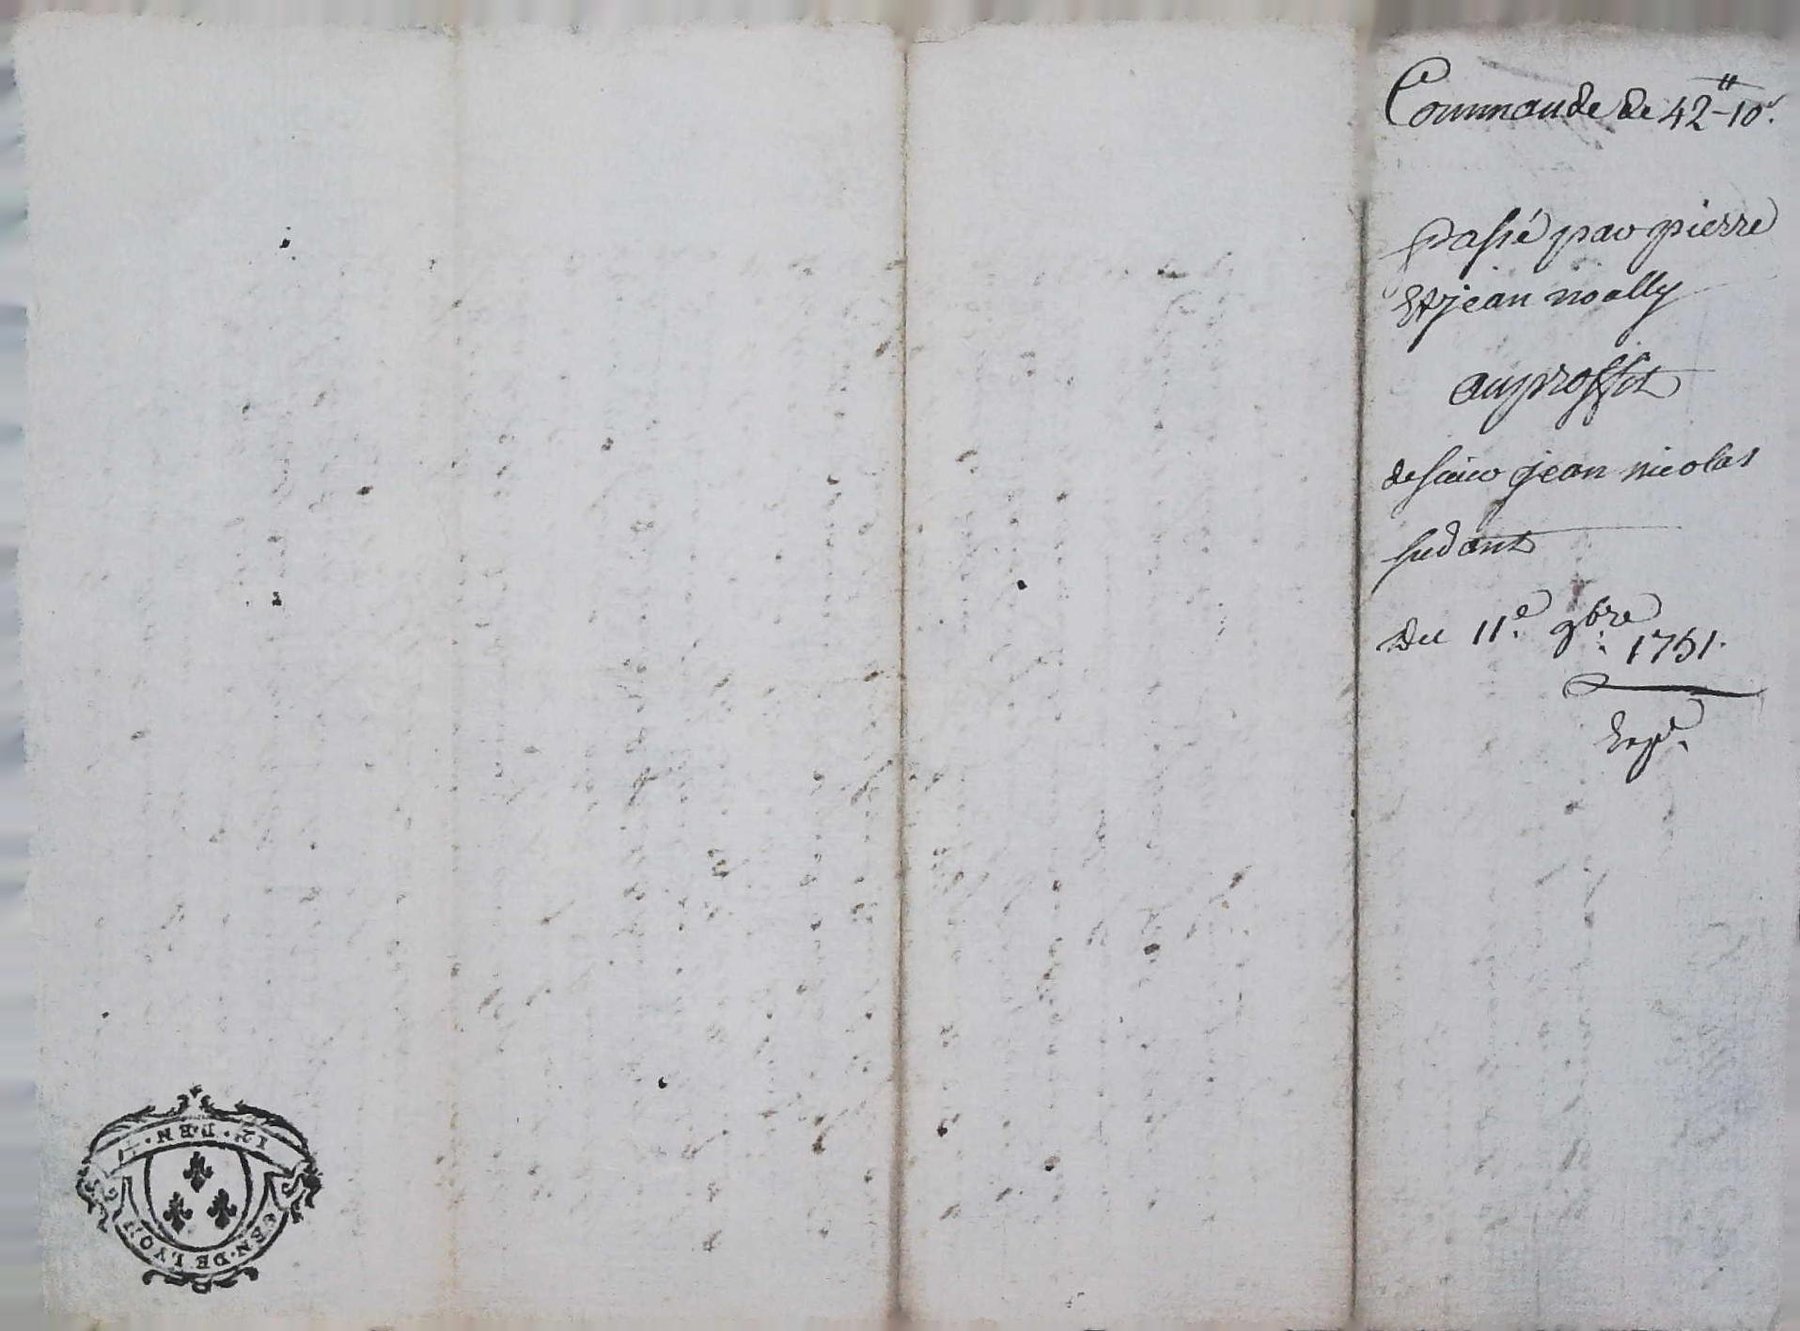 Commande de 42ᵗᵗ-10ˢ.
passé par pierre
Et jean noally
au proffit
de sieur jean nicolas
sudant
Du 11ᵉ. 9ᵇʳᵉ. 1751.
Exp.ᵉ
12. DEN.
GEN. DE LYON